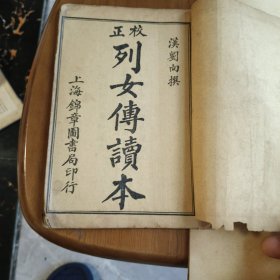 校正
漢劉向撰
列女傳讀本
上海錦章圖書局印行